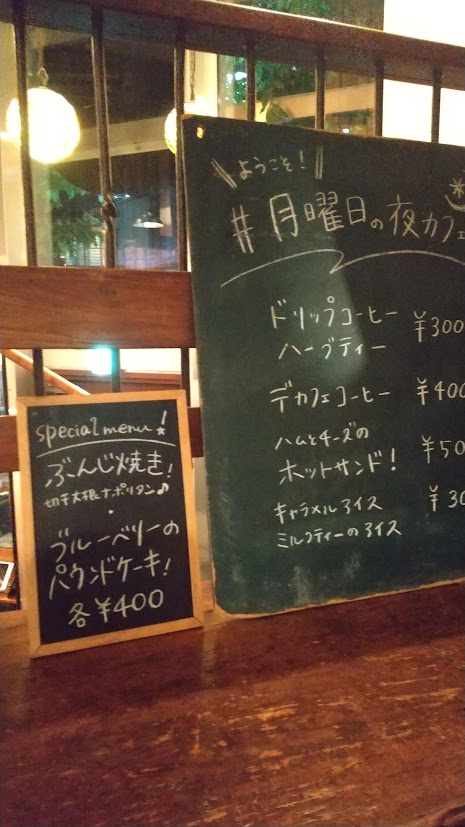 special menu!
ぶんじ焼き!
切干大根ナポリタン♪
・
ブルーベリーの
パウンドケーキ!
各¥400
ようこそ!
#月曜日の夜カフェ
ドリップコーヒー ¥300
ハーブティー
デカフェコーヒー ¥400
ハムとチーズの
ホットサンド! ¥50
キャラメルアイス ¥30
ミルクティーのアイス